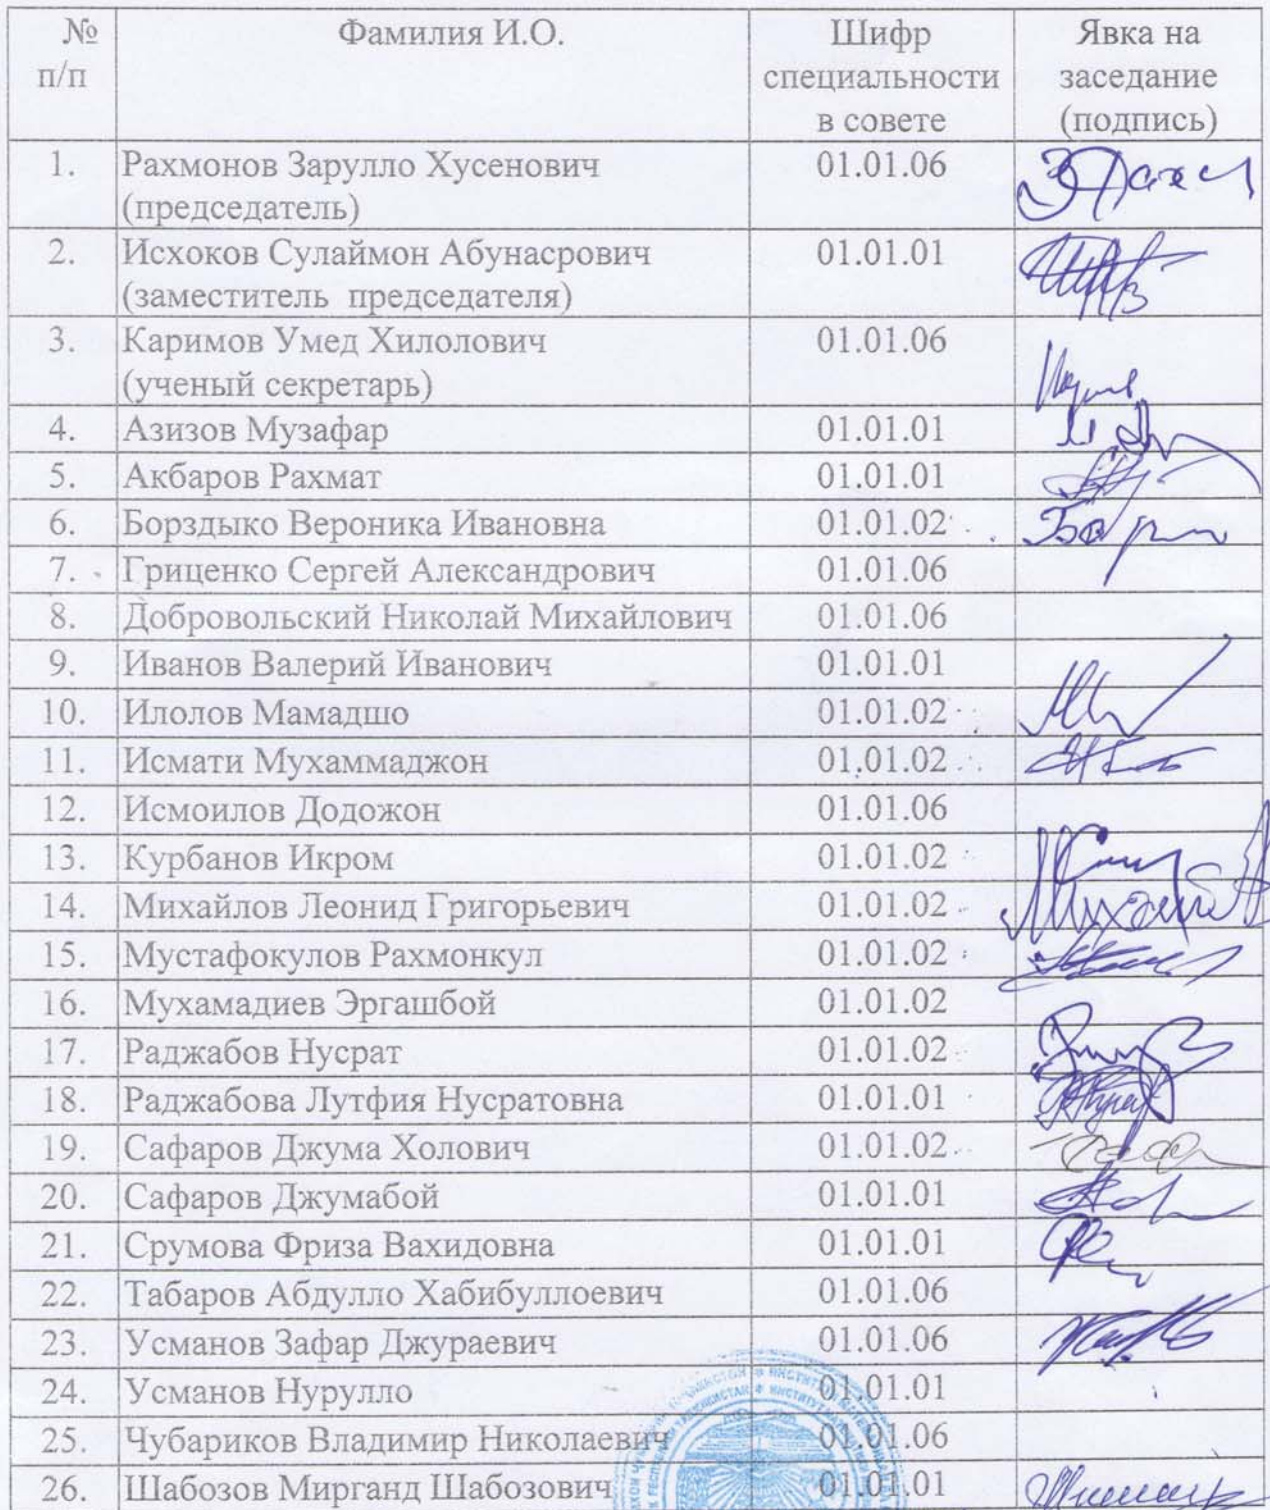 № п/п Фамилия И.О. Шифр специальности в совете Явка на заседание (подпись)
1. Рахмонов Зарулло Хусенович 01.01.06
(председатель)
2. Исхоков Сулаймон Абунасрович 01.01.01
(заместитель председателя)
3. Каримов Умед Хилолович 01.01.06
(ученый секретарь)
4. Азизов Музафар 01.01.01
5. Акбаров Рахмат 01.01.01
6. Борздыко Вероника Ивановна 01.01.02
7. Гриценко Сергей Александрович 01.01.06
8. Добровольский Николай Михайлович 01.01.06
9. Иванов Валерий Иванович 01.01.01
10. Илолов Мамадшо 01.01.02
11. Исмати Мухаммаджон 01.01.02
12. Исмоилов Додожон 01.01.06
13. Курбанов Икром 01.01.02
14. Михайлов Леонид Григорьевич 01.01.02
15. Мустафокулов Рахмонкул 01.01.02
16. Мухамадиев Эргашбой 01.01.02
17. Раджабов Нусрат 01.01.02
18. Раджабова Лутфия Нусратовна 01.01.01
19. Сафаров Джума Холович 01.01.02
20. Сафаров Джумабой 01.01.01
21. Срумова Фриза Вахидовна 01.01.01
22. Табаров Абдулло Хабибуллоевич 01.01.06
23. Усманов Зафар Джураевич 01.01.06
24. Усманов Нурулло 01.01.01
25. Чубариков Владимир Николаевич 01.01.06
26. Шабозов Мирганд Шабозович 01.01.01